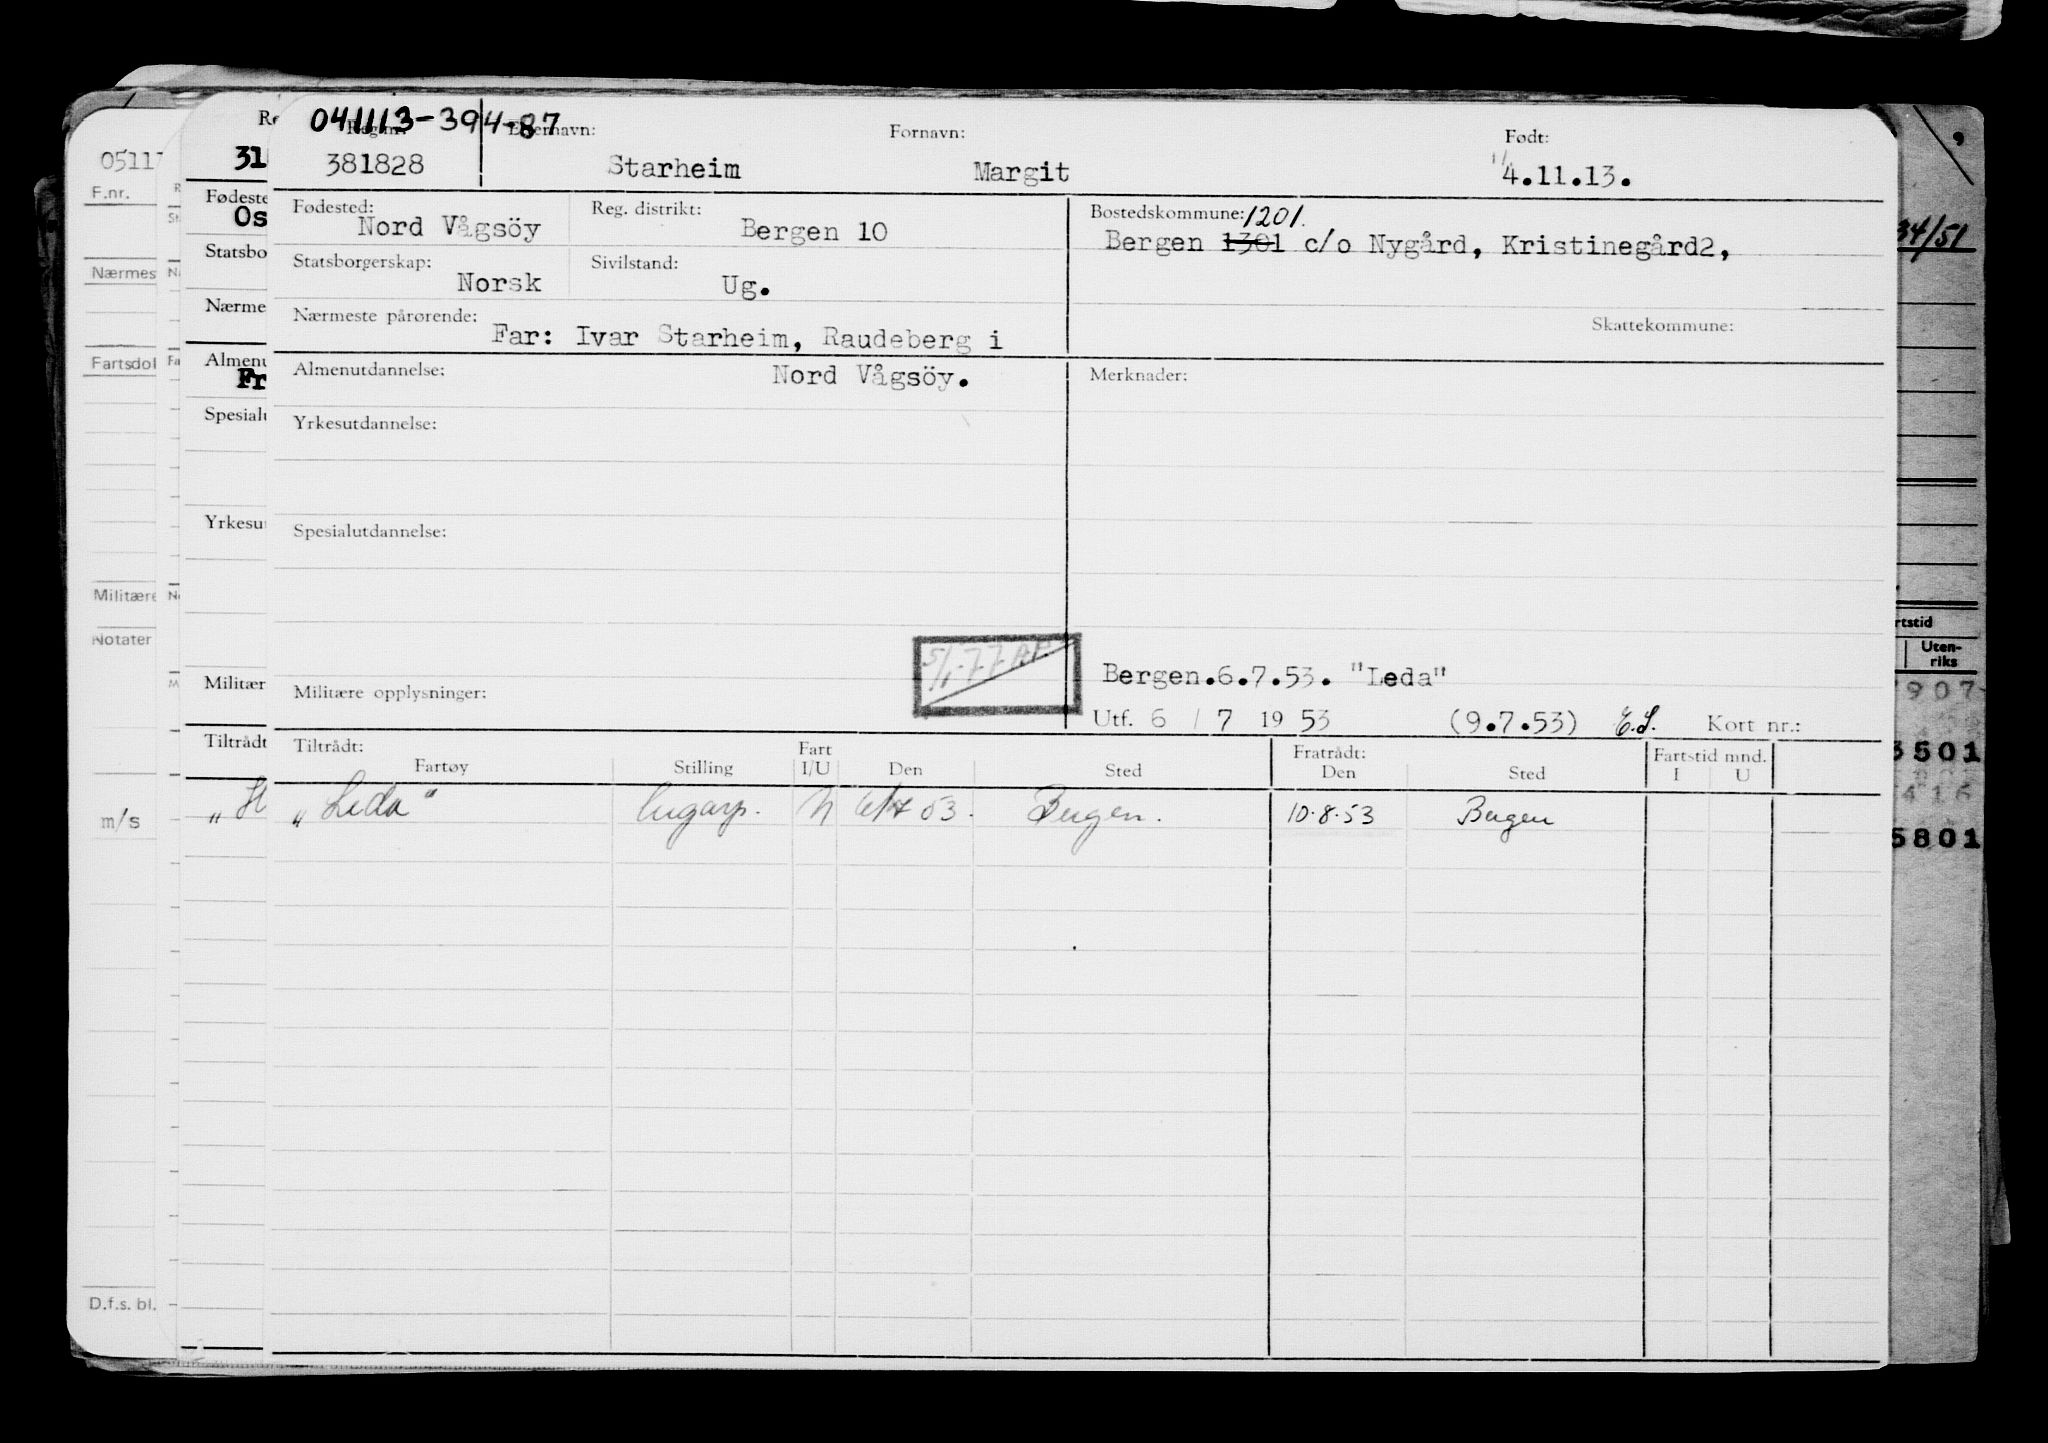 041113-394-87
Reg.nr. Etternavn: Fornavn: Født:
381828 Starheim Margit 4.11.13.
Fødested: Nord Vågsöy Reg. distrikt: Bergen 10 Bostedskommune: 1201.
Bergen 1301 c/o Nygård, Kristinegård2,
Statsborgerskap: Norsk Sivilstand: Ug.
Nærmeste pårørende: Far: Ivar Starheim, Raudeberg i Skattekommune:
Almenutdannelse: Nord Vågsöy. Merknader:
Yrkesutdannelse:
Spesialutdannelse:
Bergen.6.7.53. "Leda"
Militære opplysninger:
Utf. 6 / 7 19 53 (9.7.53) E.S. Kort nr.:
Tiltrådt: Fart Fratrådt: Fartstid mnd.
Fartøy Stilling I/U Den Sted Den Sted I U
„Leda" 53. Bergen. 10.8.53 Bergen
05117
F.nr.
Nærmes
Fartsdok
Militære
Notater
m/s
D.f.s. bl.
Re
31
Fødeste
Os
Statsbo
Nærme
Almenu
Fr
Spesialu
Yrkesu
Militær
Tiltrådt
„H
34/51
rtstid
Uten-
riks
907
3501
416
5801